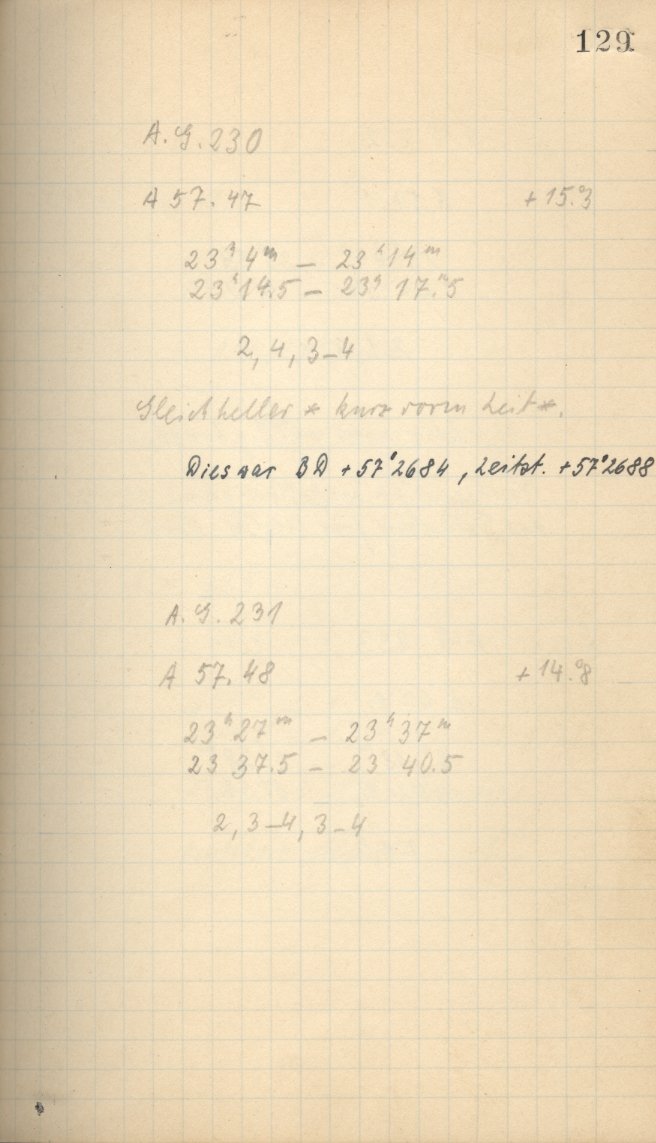 129
A.G.230
A 57.47 +15.°3
23ʰ4ᵐ – 23ʰ14ᵐ
23ʰ14.5 – 23ʰ17.ᵐ5
2, 4, 3–4
Gleich heller * kurz vorm Leit*.
Dies war BD +57°2684, Leitst. +57°2688
A.G.231
A 57.48 +14.°8
23ʰ27ᵐ – 23ʰ37ᵐ
23 37.5 – 23 40.5
2, 3–4, 3–4